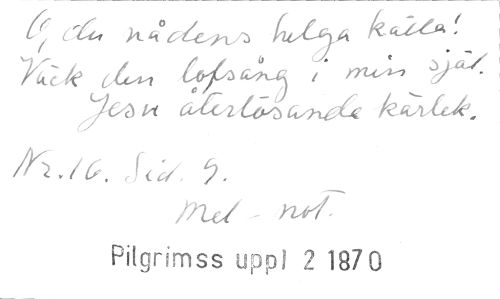 O, du nådens helga källa!
Väck den lofsång i min själ.
Jesu återlösande kärlek.
Nr. 16. Sid. 9.
Mel - not.
Pilgrimss uppl 2 1870